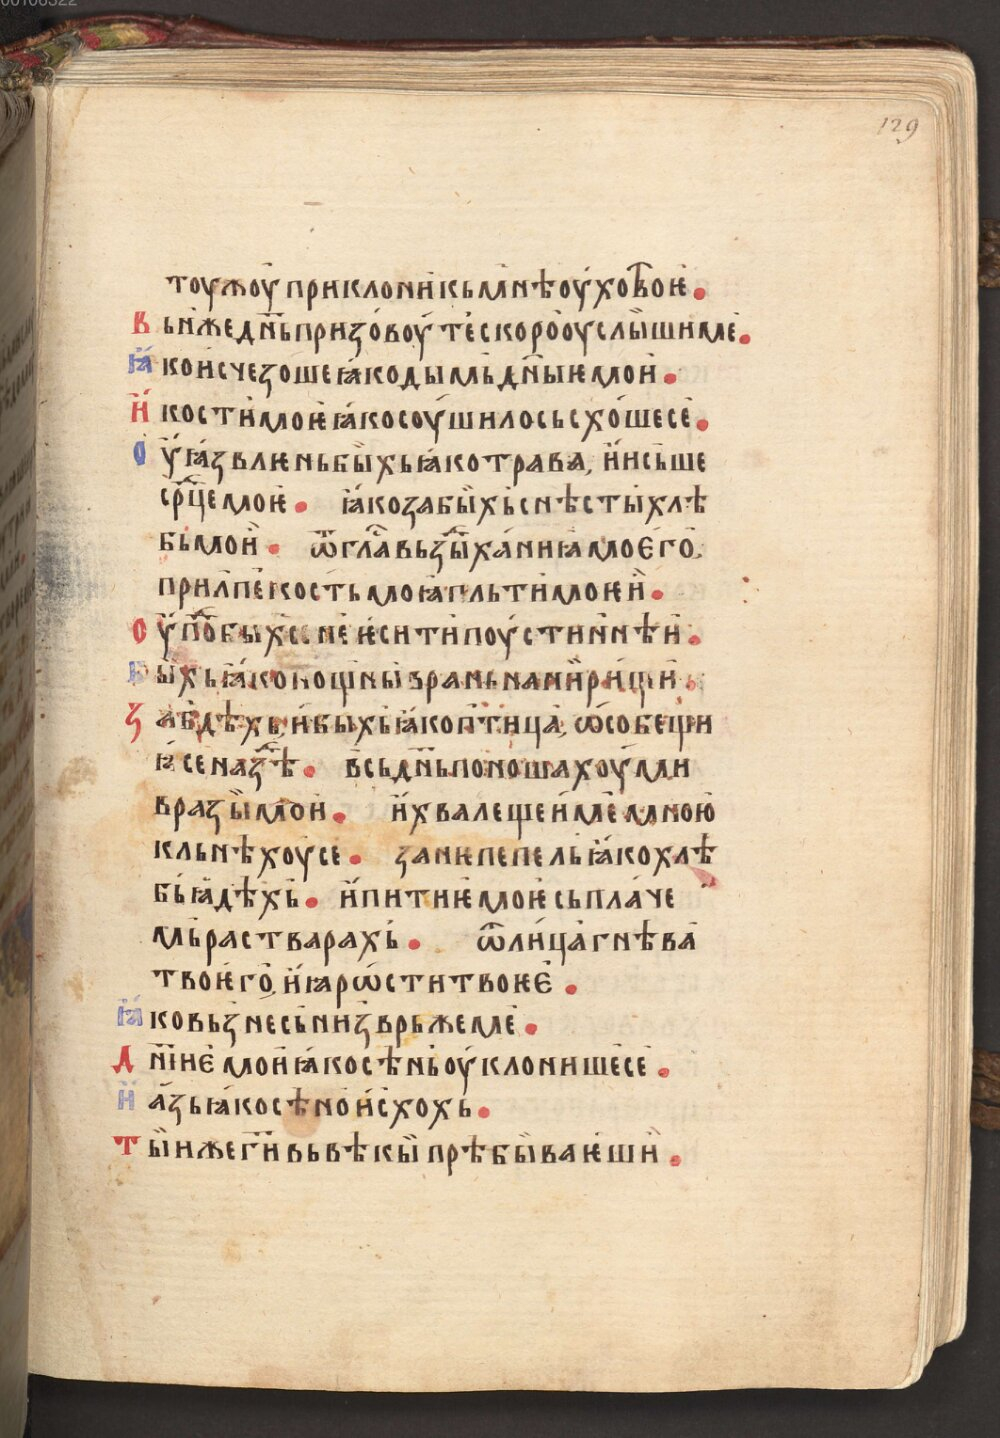 00106322
129
тоужоу приклони кь мнѣ оухо твоѥ.
Вь ниже дн҃ь призовоу те скоро оуслыши ме.
Ꙗко исчезоше ꙗко дымь дн҃ыѥ мои.
И кости моѥ ꙗко соушило сьсхоше се.
Оуꙗзвлѥнь быхь ꙗко трава, и исьше
ср҃це моѥ. ꙗко забыхь снѣсти хлѣ
бь мои. ѿ гласа вьздыханиꙗ моего.
прилпе кость моꙗ пльти моѥи.
Оуподобых се неѥсити поустиннѣи.
Быхь ꙗко нощны врань на нирищи.
Забдѣхь, и быхь ꙗко птица, ѡсобещи
ꙗ се на здѣ. вьсь дн҃ь поношахоу ми
вразы мои. и хвалещеи ме мною
кльнѣхоу се. занѥ пепель ꙗко хлѣ
бь ꙗдѣхь. и питиѥ моѥ сь плаче
мь растварахь. ѿ лица гнѣва
твоѥго, и ꙗрѡсти твоѥе.
Ꙗко вьзнесь низврьже ме.
Дн҃иѥ мои ꙗко сѣнь оуклонише се.
И азь ꙗко сѣно исхохь.
Ты иже г҃и вь вѣкы прѣбываѥши.